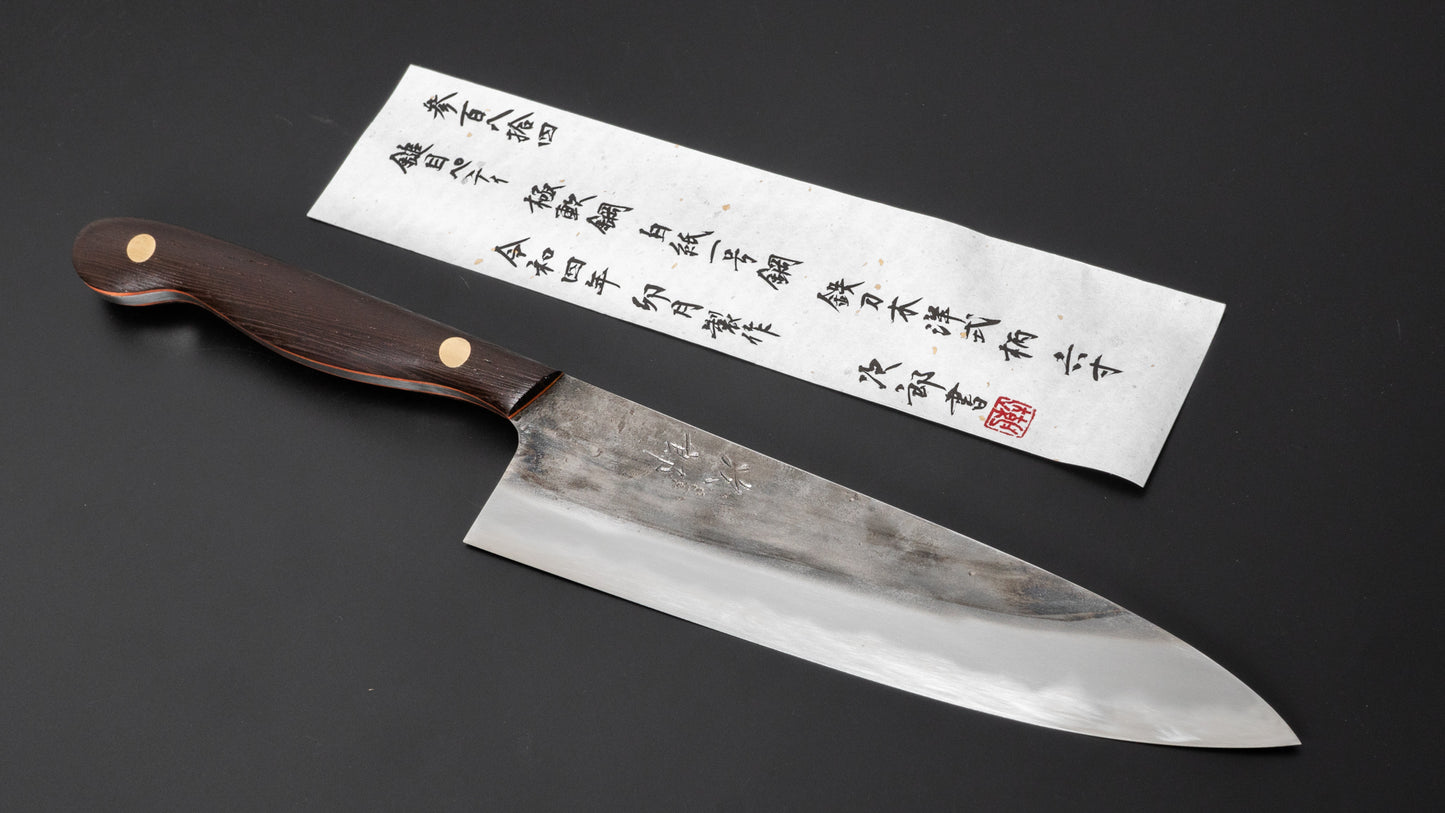 参百八拾四
鎚目ペティ 極軟鋼 白紙一号鋼 鉄刀木洋式柄 六寸
令和四年 卯月 製作 次郎書